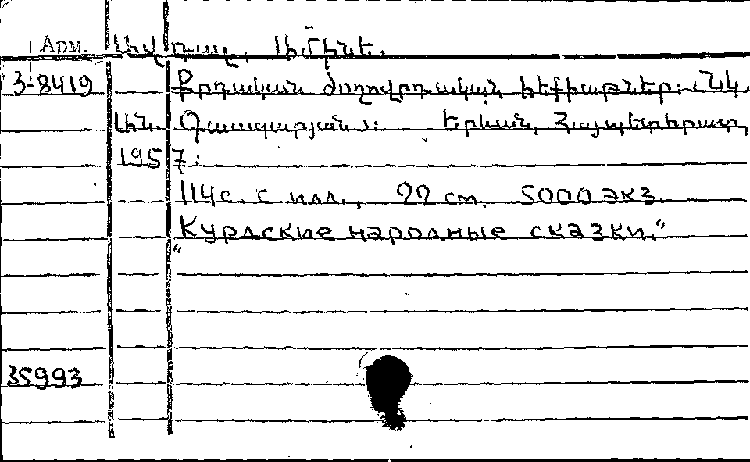 Арм. Ավդալ, Ամինե.
3-8419 Քրդական ժողովրդական հեքիաթներ: Նկ.
Ան. Գասպարյան: Երևան, Հայպետհրատ,
1957:
114с. с илл., 22 см. 5000 экз.
"Курдские народные сказки."
35993